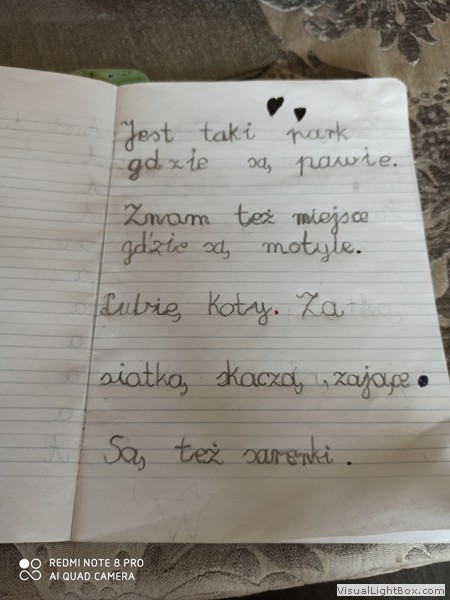 Jest taki park
gdzie są pawie.
Znam też miejsce
gdzie są motyle.
Lubię koty. Za
siatką skaczą, zające.
Są też sarenki.
REDMI NOTE 8 PRO
AI QUAD CAMERA
VisualLightBox.com